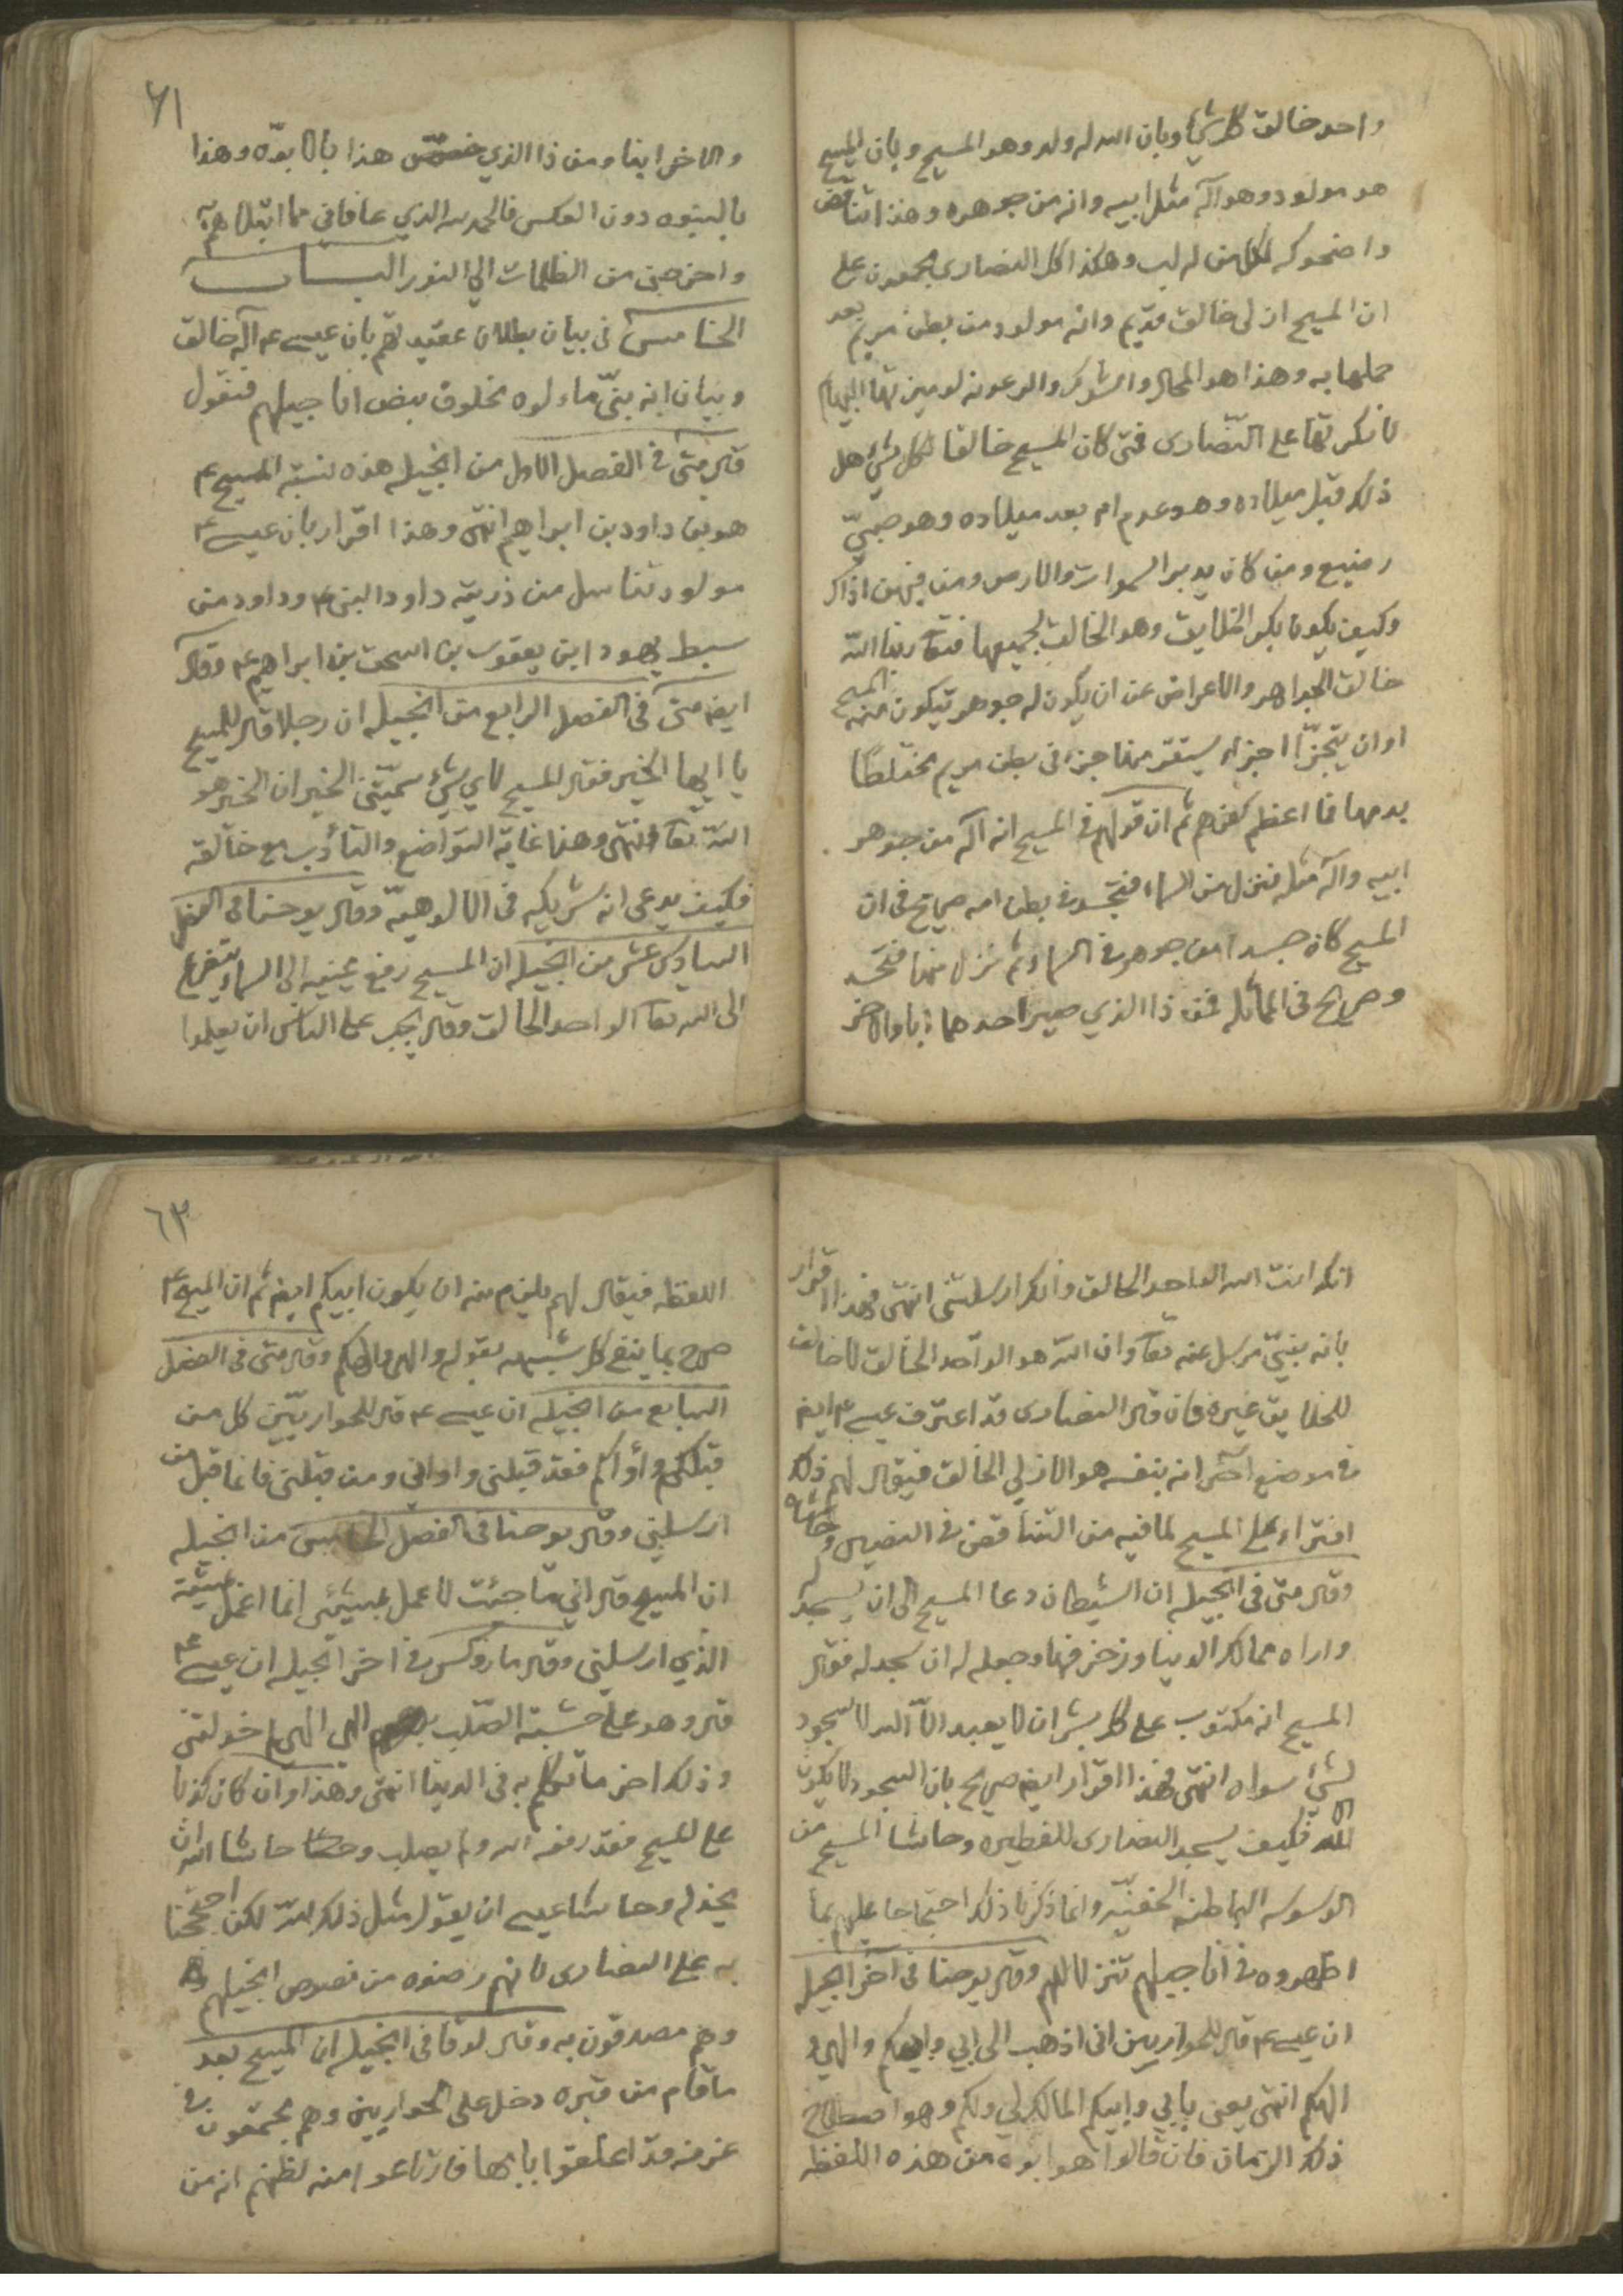 واحد خالق كل شيء وبان الله له ولد وهو المسيح وبان المسيح
هو مولود وهو اله مثل ابيه وانه من جوهره وهذا تناقض
واضحوكه لكل من له لب وهكذا كل النصارى مجمعون على
ان المسيح ازلى خالق قديم وانه مولود من بطن مريم بعد
حملها به وهذا هو المحال والشرك والرعونه
على النصارى فمتى كان المسيح خالقا لكل شيء هل
ذلك قبل ميلاده وهو عدم ام بعد ميلاده وهو صبىّ
رضيع ومن كان يدبر السموات والارض ومن فيهن اذ ذاك
وكيف يكون بكر الخلايق وهو الخالق لجميعها فتعا ربنا الله
خالق الجواهر والاعراض عن ان يكون له جوهر يتكون منه المسيح
او ان يتجزّا اجزاء يستقر منها جزء فى بطن مريم مختلطا
بدمها فما اعظم كفرهم ثم ان قولهم فى المسيح انه اله من جوهر
ابيه واله مثله فنزل من السماء فتجسد فى بطن امه صريح فى ان
المسيح كان جسدا من جوهر فى السماء ثم نزل منها فتجسد
وصريح فى المماثله فمن ذا الذي صير احدهما ابا والاخر
٦١
والاخر ابنا ومن ذا الذي خصّص هذا بالابوّه وهذا
بالبنوه دون العكس فالحمد لله الذي عافانى مما ابتلاهم به
واخرجنى من الظلمات الى النور البـــاب
الخامس فى بيان بطلان عقيدتهم بان عيسى ع م اله خالق
وبيان انه نبىّ مألوه مخلوق بنص اناجيلهم فنقول
قال متى فى الفصل الاول من انجيله هذه نسبة المسيح ع م
هو بن داود بن ابراهيم انتهى وهذا اقرار بان عيسى ع م
مولود تناسل من ذرية داود النبى ع م وداود من
سبط يهودا بن يعقوب بن اسحق بن ابراهيم ع م وقال
ايضا متى فى الفصل الرابع من انجيله ان رجلا قال للمسيح
يا ايها الخير فقال المسيح لاي شيء سمّيتنى الخير ان الخير هو
الله تعا انتهى وهذا غاية التواضع والتأدب مع خالقه
فكيف يدعى انه شريكه فى الالوهيّة وقال يوحنا فى الفصل
السادس عشر من انجيله ان المسيح رفع عينيه الى السماء يتضرع
الى الله تعا الواحد الخالق وقال يجب على الناس ان يعلموا
انك انت الله الواحد الخالق وانك ارسلتنى انتهى فهذا اقرار
بانه نبىّ مرسل عنه تعا وان الله هو الواحد الخالق لا خالق
للخلايق غيره فان قال النصارى قد اعترف عيسى ع م ايضا
فى موضع اخر انه بنفسه هو الازلي الخالق فيقال لهم ذلك
افتراء على المسيح لما فيه من التناقض فى النصين وحاشاه
وقال متى فى انجيله ان الشيطان دعا المسيح الى ان يسجد له
واراه ممالك الدنيا وزخرفها وجعله له ان سجد له فقال
المسيح انه مكتوب على كل بشر ان لا يعبد الا الله لا السجود
لشيء سواه انتهى فهذا اقرار ايضا صريح بان السجود لا يكون
الا لله فكيف يسجد النصارى للفطيره وحاشا المسيح من
الوسوسه الباطنه الخفيّه وانما ذكرنا ذلك احتجاجا عليهم بما
اظهروه فى اناجيلهم تنزلا لهم وقال يوحنا فى اخر انجيله
ان عيسى ع م قال للحواريين انى اذهب الى ابي وابيكم والهي و
الهكم انتهى يعنى بابي وابيكم المالك لي ولكم وهو اصطلاح
ذلك الزمان فان قالوا هو ابوه من هذه اللفظه
٦٢
اللفظه فيقال لهم يلزم منه ان يكون ابيكم ايضا ثم ان المسيح ع م
صرح بما ينفى كل شبهه بقوله والهى والهكم وقال متى فى الفصل
السابع من انجيله ان عيسى ع م قال للحواريّين كل من
قبلكم وآواكم فقد قبلنى واوانى ومن قبلنى فانما قبل من
ارسلني وقال يوحنا فى الفصل الخامس من انجيله
ان المسيح قال اني ما جئت لاعمل بمشيئتى انما اعمل بمشيئة
الذي ارسلني وقال ماركوس فى اخر انجيله ان عيسى ع م
قال وهو على خشبة الصّلب الهى الهى لم خذلتنى
وذلك اخر ما تكلم به فى الدنيا انتهى وهذا وان كان كذبا
على المسيح فقد رفعه الله ولم يصلب وحاشا الله ان
يخذله وحاشا عيسى ان يقول مثل ذلك لله لكن احتججنا
به على النصارى لانهم رضوه من نصوص انجيلهم
وهم مصدقون به وقال لوقا فى انجيله ان المسيح بعد
ما قام من قبره دخل على الحواريين وهم مجتمعون فى
غرفه قد اغلقوا بابها فارتاعوا منه لظنهم انه من